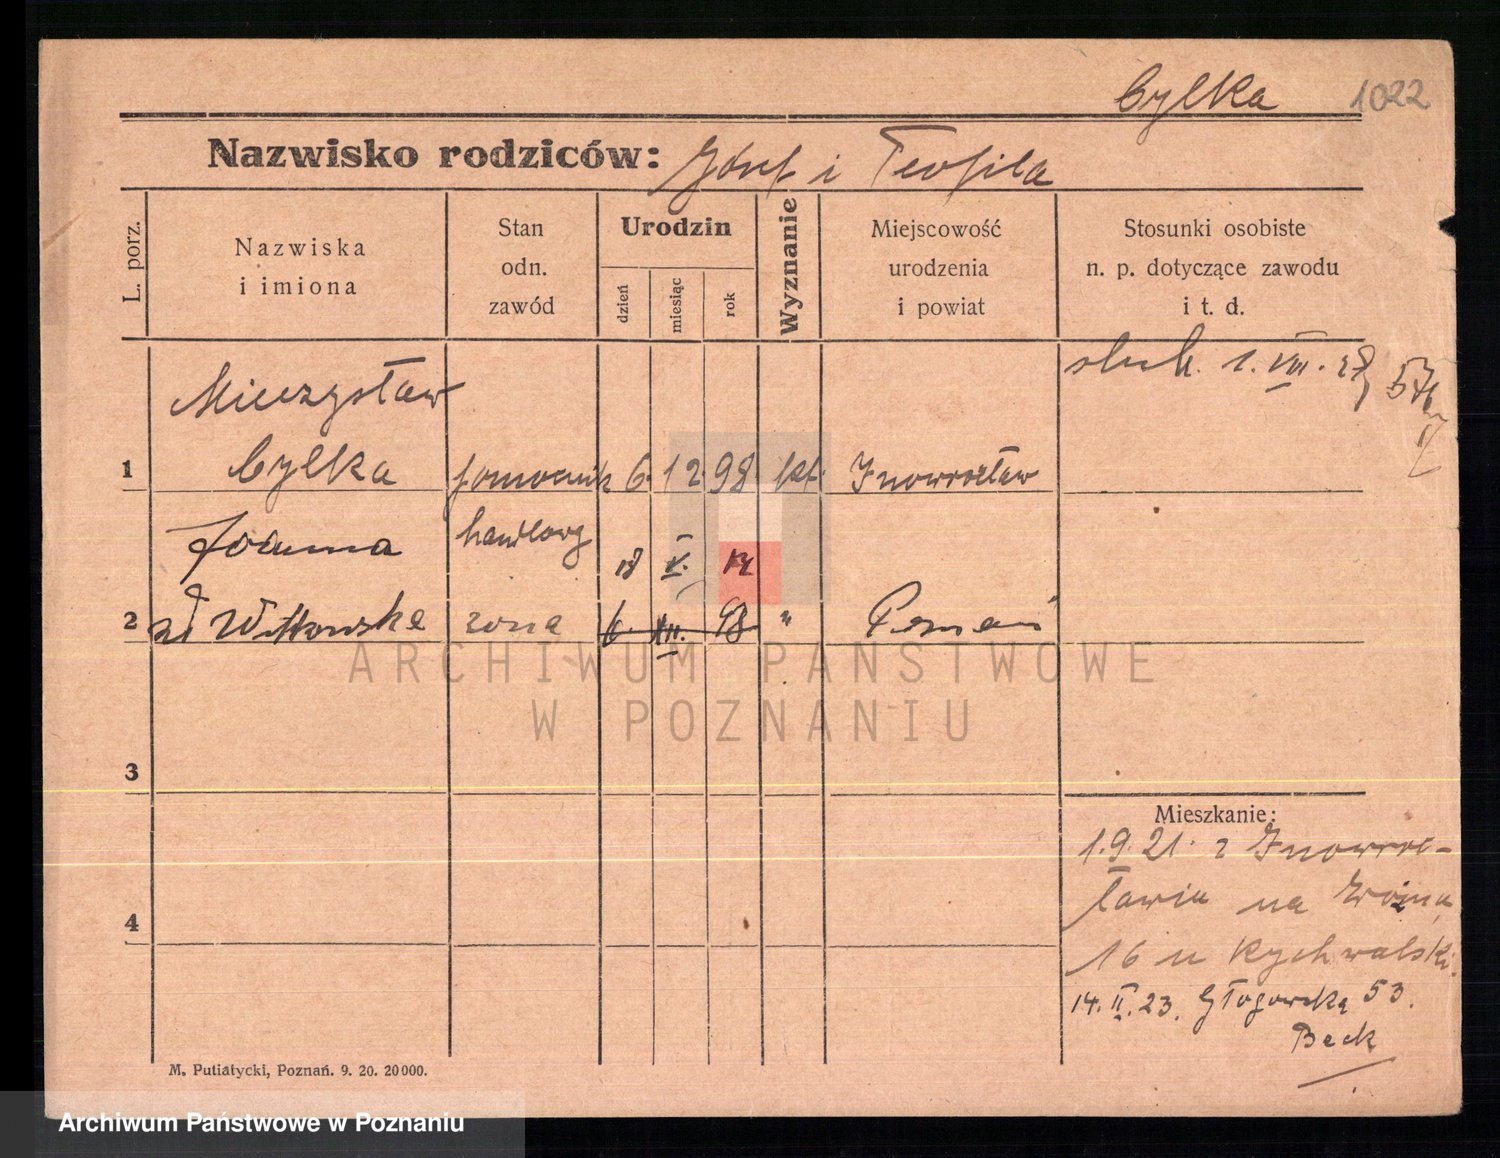 Cylka 1022
Nazwisko rodziców: Józef i Teofila
L. porz.
Nazwiska
i imiona
Stan
odn.
zawód
Urodzin
dzień
miesiąc
rok
Wyznanie
Miejscowość
urodzenia
i powiat
Stosunki osobiste
n. p. dotyczące zawodu
i t. d.
1. VIII. 28
Mieczysław
1 Cylka pomocnik 6. 12. 98 kat. Inowrocław
handlowy
Joanna
18 V.
2 Witkowska żona 6. XII. 98 " Poznań
3
4
Mieszkanie:
1.9.21. z Inowroc-
ławia na
16 u Rychwalski
14. II. 23. Głogowska 53.
Beck
M. Putiatycki, Poznań. 9. 20. 20000.
ARCHIWUM PAŃSTWOWE
W POZNANIU
Archiwum Państwowe w Poznaniu